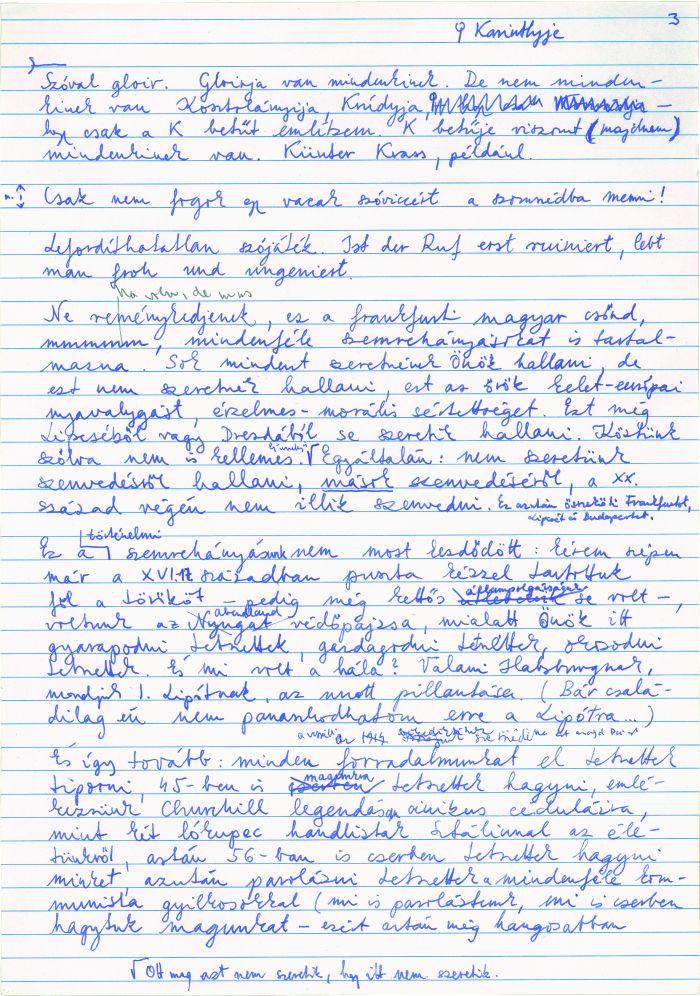 3
Karinthyje
Szóval gloir. Gloirja van mindenkinek. De nem minden-
kinek van Kosztolányija, Knídyja,
hogy csak a K betűt említsem. K betűje viszont (majdnem)
mindenkinek van. Künter Krass, például.
Csak nem fogok egy vacak szóviccért a szomszédba menni!
Lefordíthatatlan szójáték. Ist der Ruf erst ruiniert, lebt
man froh und ungeniert.
Na volna, de
Ne reménykedjenek, ez a frankfurti magyar csönd,
mmmmm, mindenféle szemrehányásokat is tartal-
mazna. Sok mindent szeretnének Önök hallani, de
ezt nem szeretnék hallani, ezt az örök kelet-európai
nyavalygást, érzelmes-morális sértettséget. Ezt még
Lipcséből vagy Drezdából se szeretik hallani. Köztünk
szólva nem is kellemes. √ Egyáltalán: nem szeretünk
szenvedésről hallani, mások szenvedéséről, a XX.
század végén nem illik szenvedni. Ez aztán összeköti Frankfurtot,
Lipcsét és Budapestet.
történelmi
Ez a szemrehányásunk nem most kezdődött: kérem szépen
már a XVI.-17. században puszta kézzel tartottuk
állampolgárságunk
föl a törököt – pedig még kettős se volt –,
voltunk az Nyugat védőpajzsa, mialatt Önök itt
gyarapodni tetszettek, gazdagodni tetszettek, okosodni
tetszettek. És mi volt a hála? Valami Habsburgnak,
mondjuk I. Lipótnak, az unott pillantása (Bár csalá-
dilag én nem panaszkodhatom erre a Lipótra...)
az 1914
És így tovább: minden forradalmunkat el tetszettek
magunkra
tiporni, 45-ben is tetszettek hagyni, emlé-
kezzünk Churchill legendásan cinikus cédulázására,
mint két lókupec handliztak Sztálinnal az éle-
tünkről, aztán 56-ban is cserben tetszettek hagyni
minket, azután parolázni tetszettek a mindenféle kom-
munista gyilkosokkal (mi is paroláztunk, mi is cserben
hagytuk magunkat – ezért aztán még hangosabban
√ Ott meg azt nem szeretik, hogy itt nem szeretik.